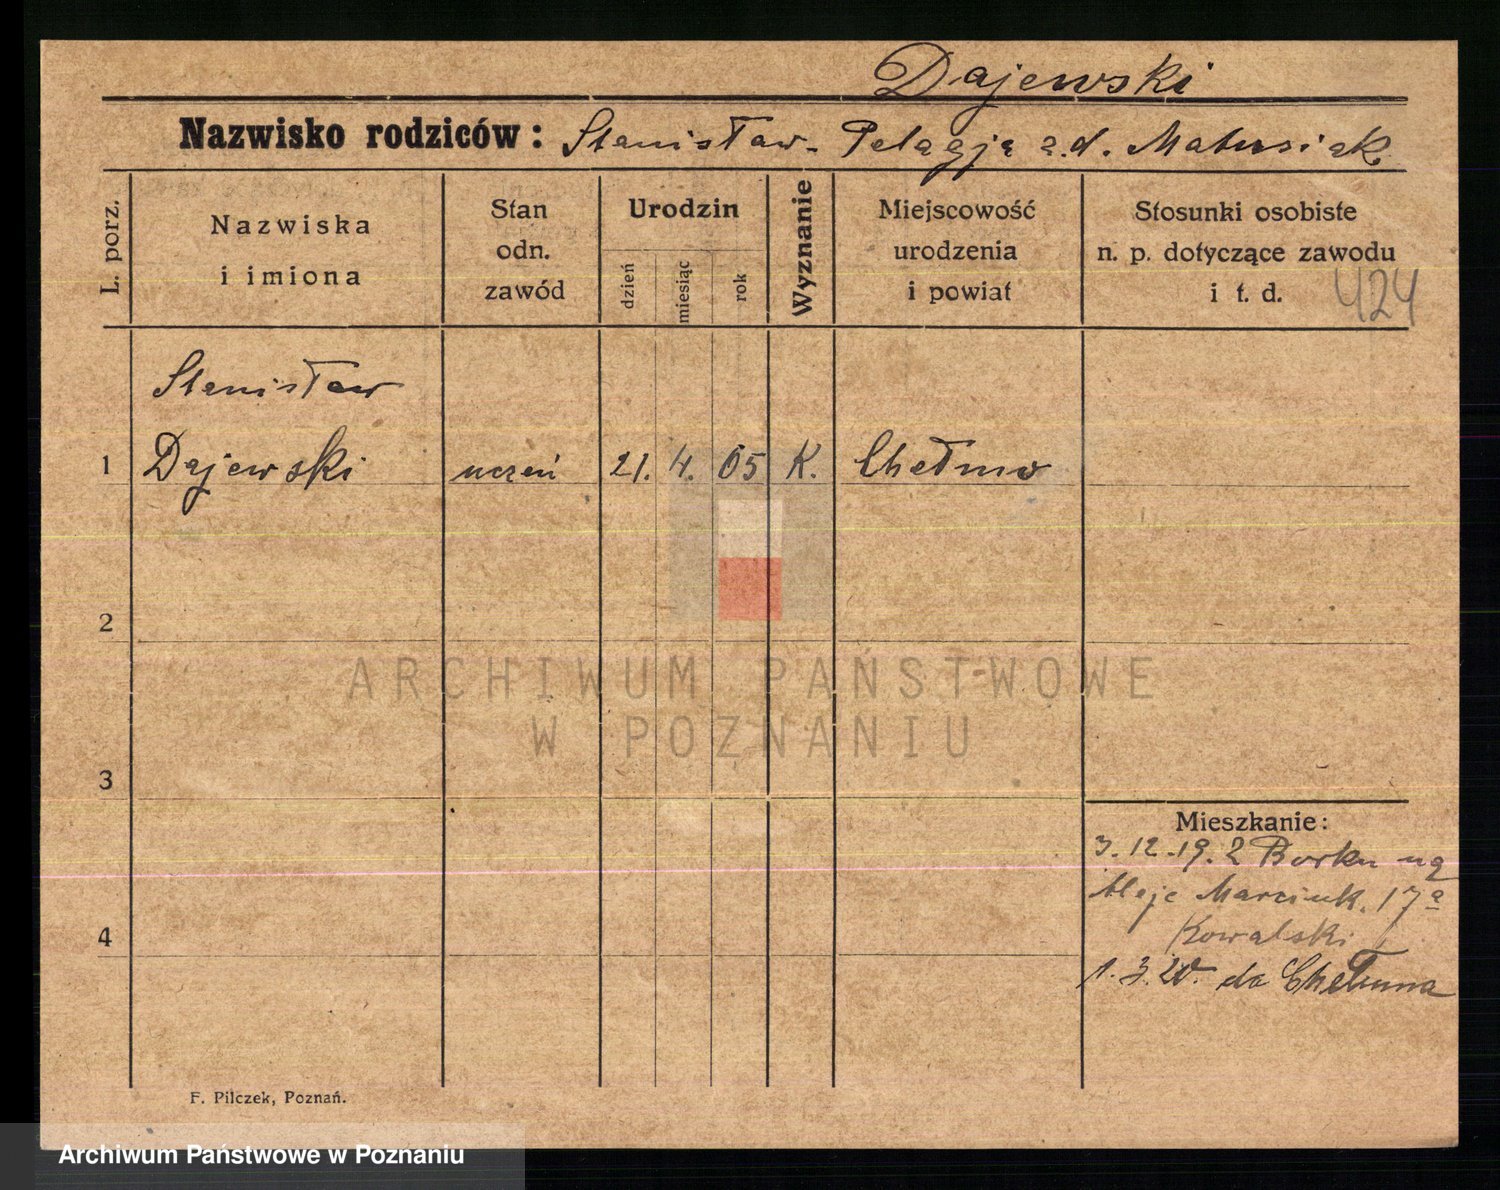 Dajewski
Nazwisko rodziców: Stanisław - Pelagja z.d. Matusiak
L. porz.
Nazwiska
i imiona
Stan
odn.
zawód
Urodzin
dzień
miesiąc
rok
Wyznanie
Miejscowość
urodzenia
i powiat
Stosunki osobiste
n. p. dotyczące zawodu
i t. d. 424
Stanisław
1 Dajewski uczeń 21. 4. 05 K. Chełmno
2
ARCHIWUM PAŃSTWOWE
W POZNANIU
3
Mieszkanie:
3.12.19. z Borku
Marcink. 17a
4
Kowalski
1.3.20. do Chełmna
F. Pilczek, Poznań.
Archiwum Państwowe w Poznaniu